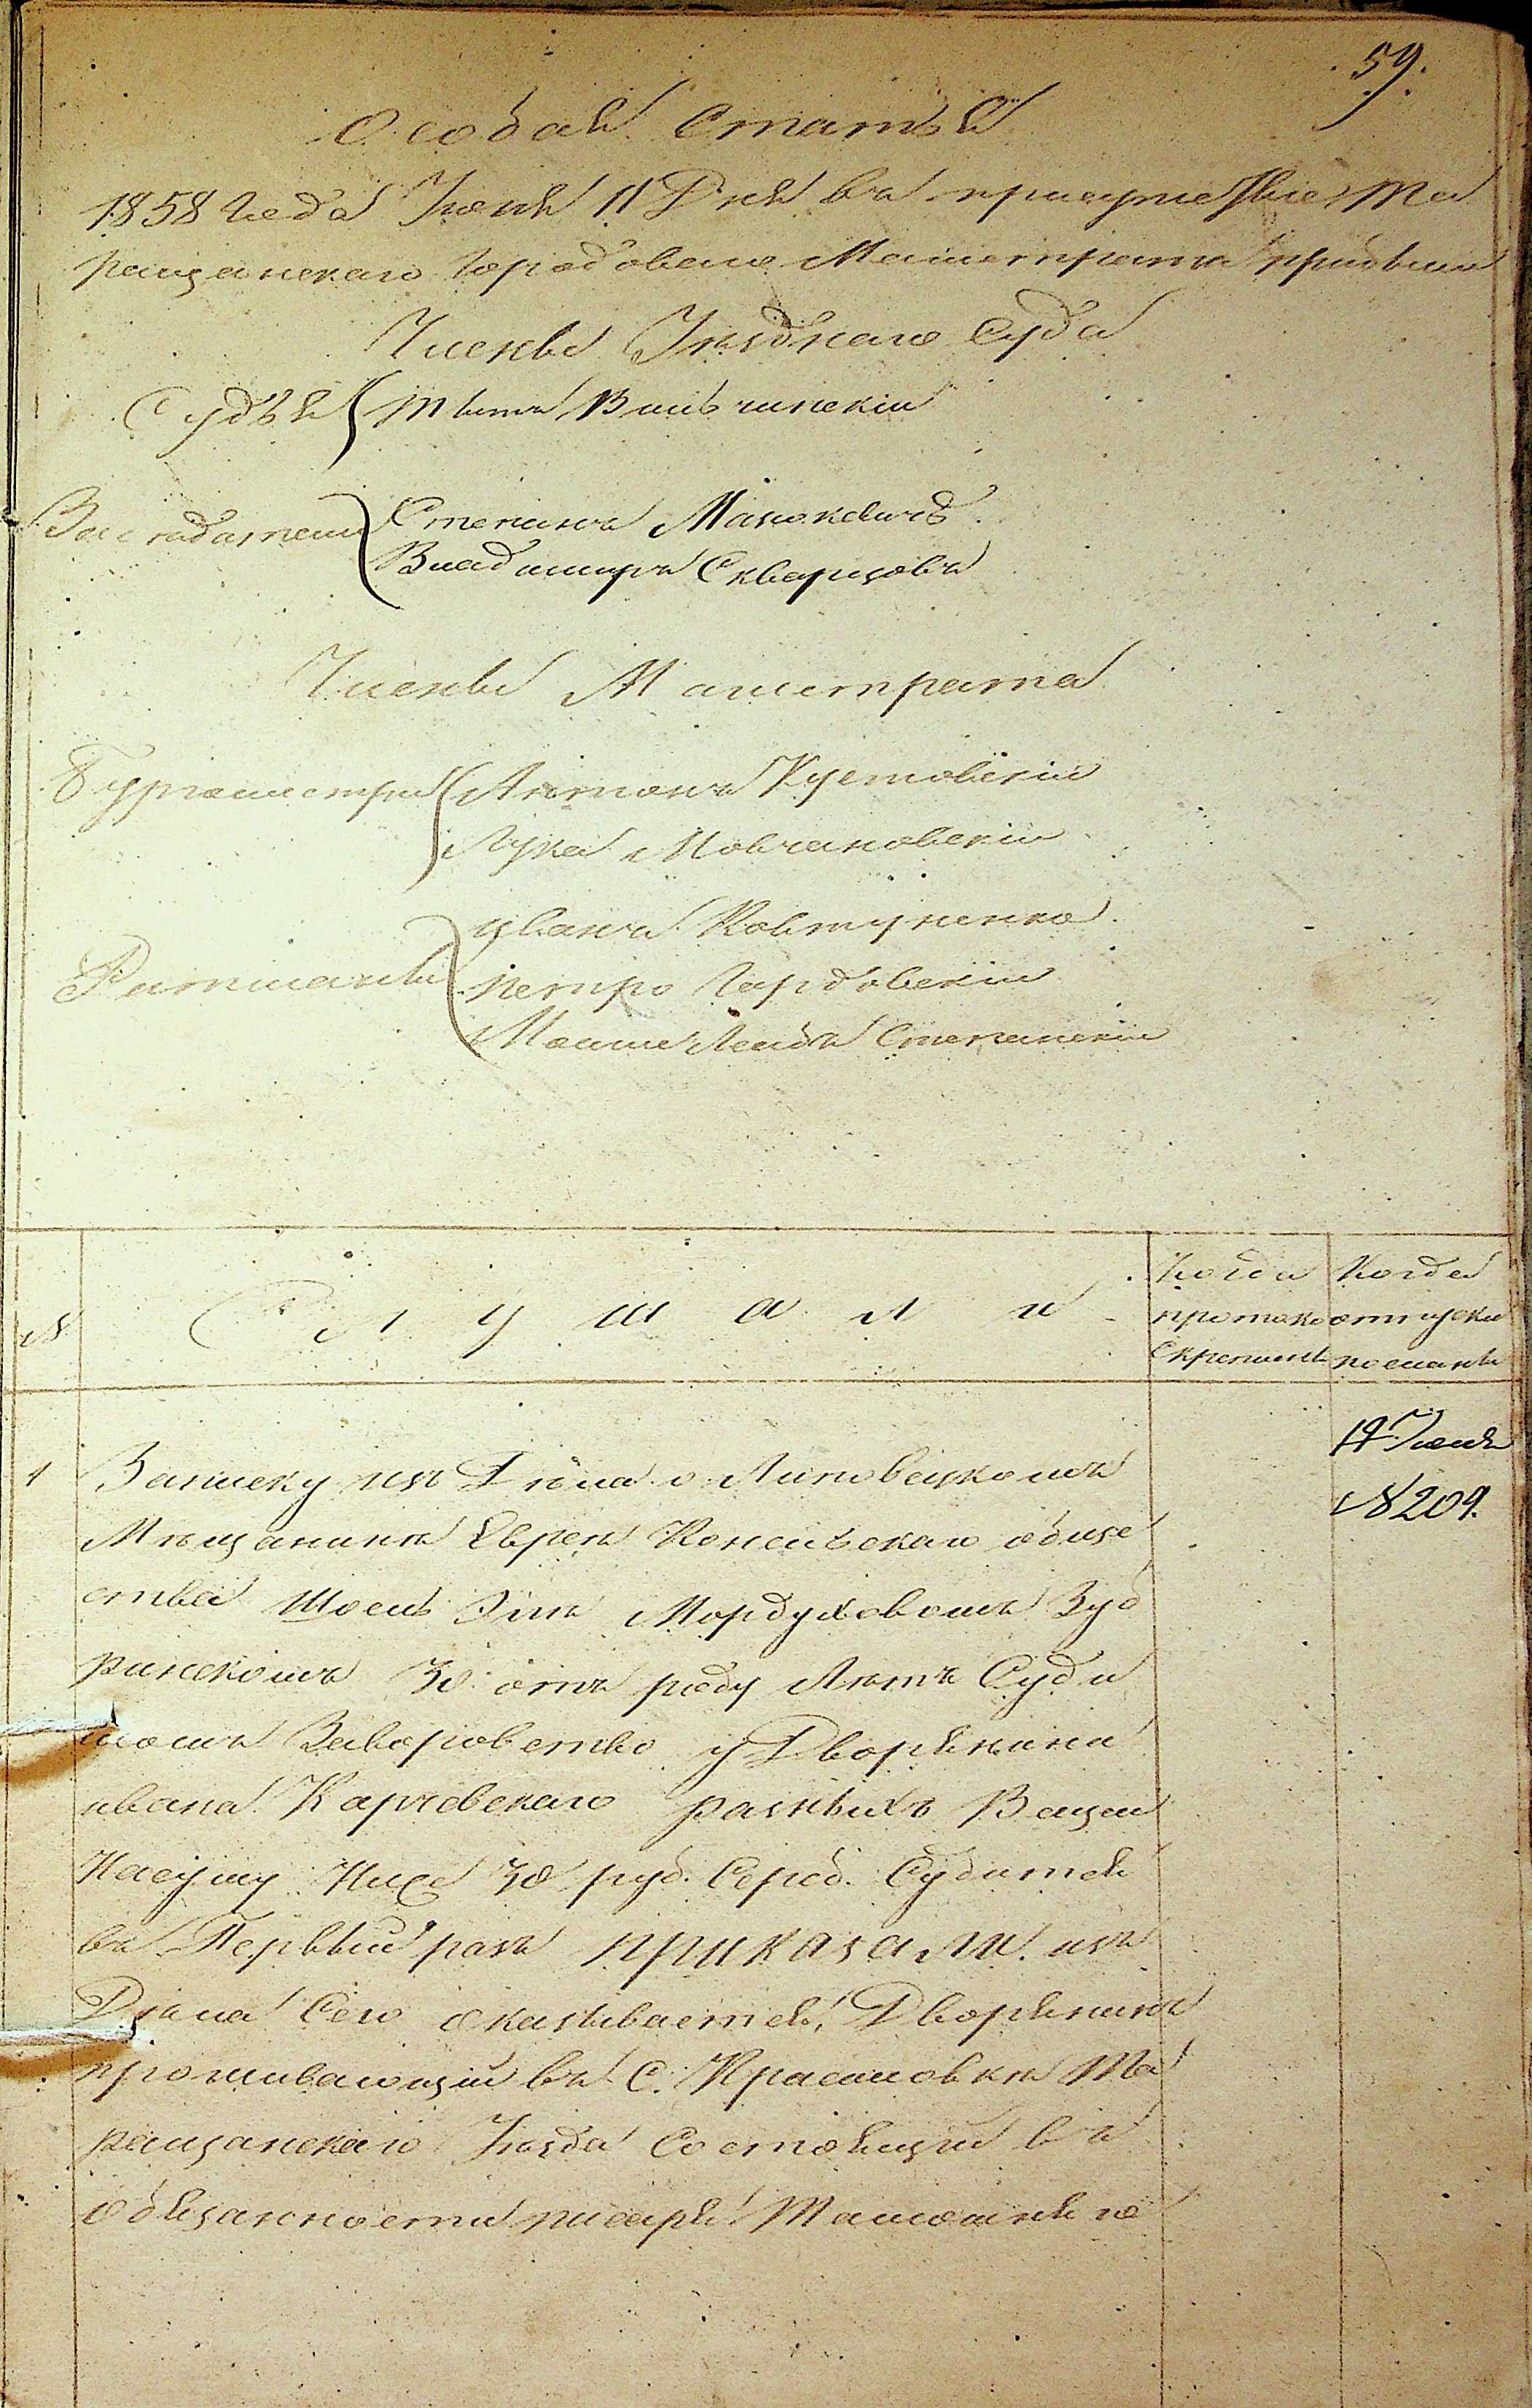 59.
Особая Статья
1858 года Июня 11 Дня въ присутствіе Та
ращанскаго Городоваго Магистрата прибыли
Члены Уѣзднаго Суда
Судья
Засѣдатели Степанъ
Владимиръ Скварцовъ
Члены Магистрата
Бургомистры Антонъ Кустовскій
Лука Мовчановскій
Ратманы иванъ Ковтуненко
петро Гардовскій
Мошко Лейба Степанскій
№ Слушали
Когда протоко скрепленъ
Когда отпуски посланы
1 Записку изъ Дѣла о Липовецкомъ
Мѣщанинѣ Евреѣ Конельскаго обще
ства Мордуховомъ
30 отъ роду Лѣтъ Суди
момъ Заворовство у Дворянина
ивана Карчевскаго разныхъ Вещей
Насуму Ниже 30 руб. Сереб. Судится
въ Первый разъ приказали. изъ
Дѣла Сего оказывается, Дворянинъ
проживающій въ С. Красиловкѣ Та
ращанскаго Уѣзда Состоящій въ
обязанности писаря Тамошнѣго
14 Июня
№ 209.